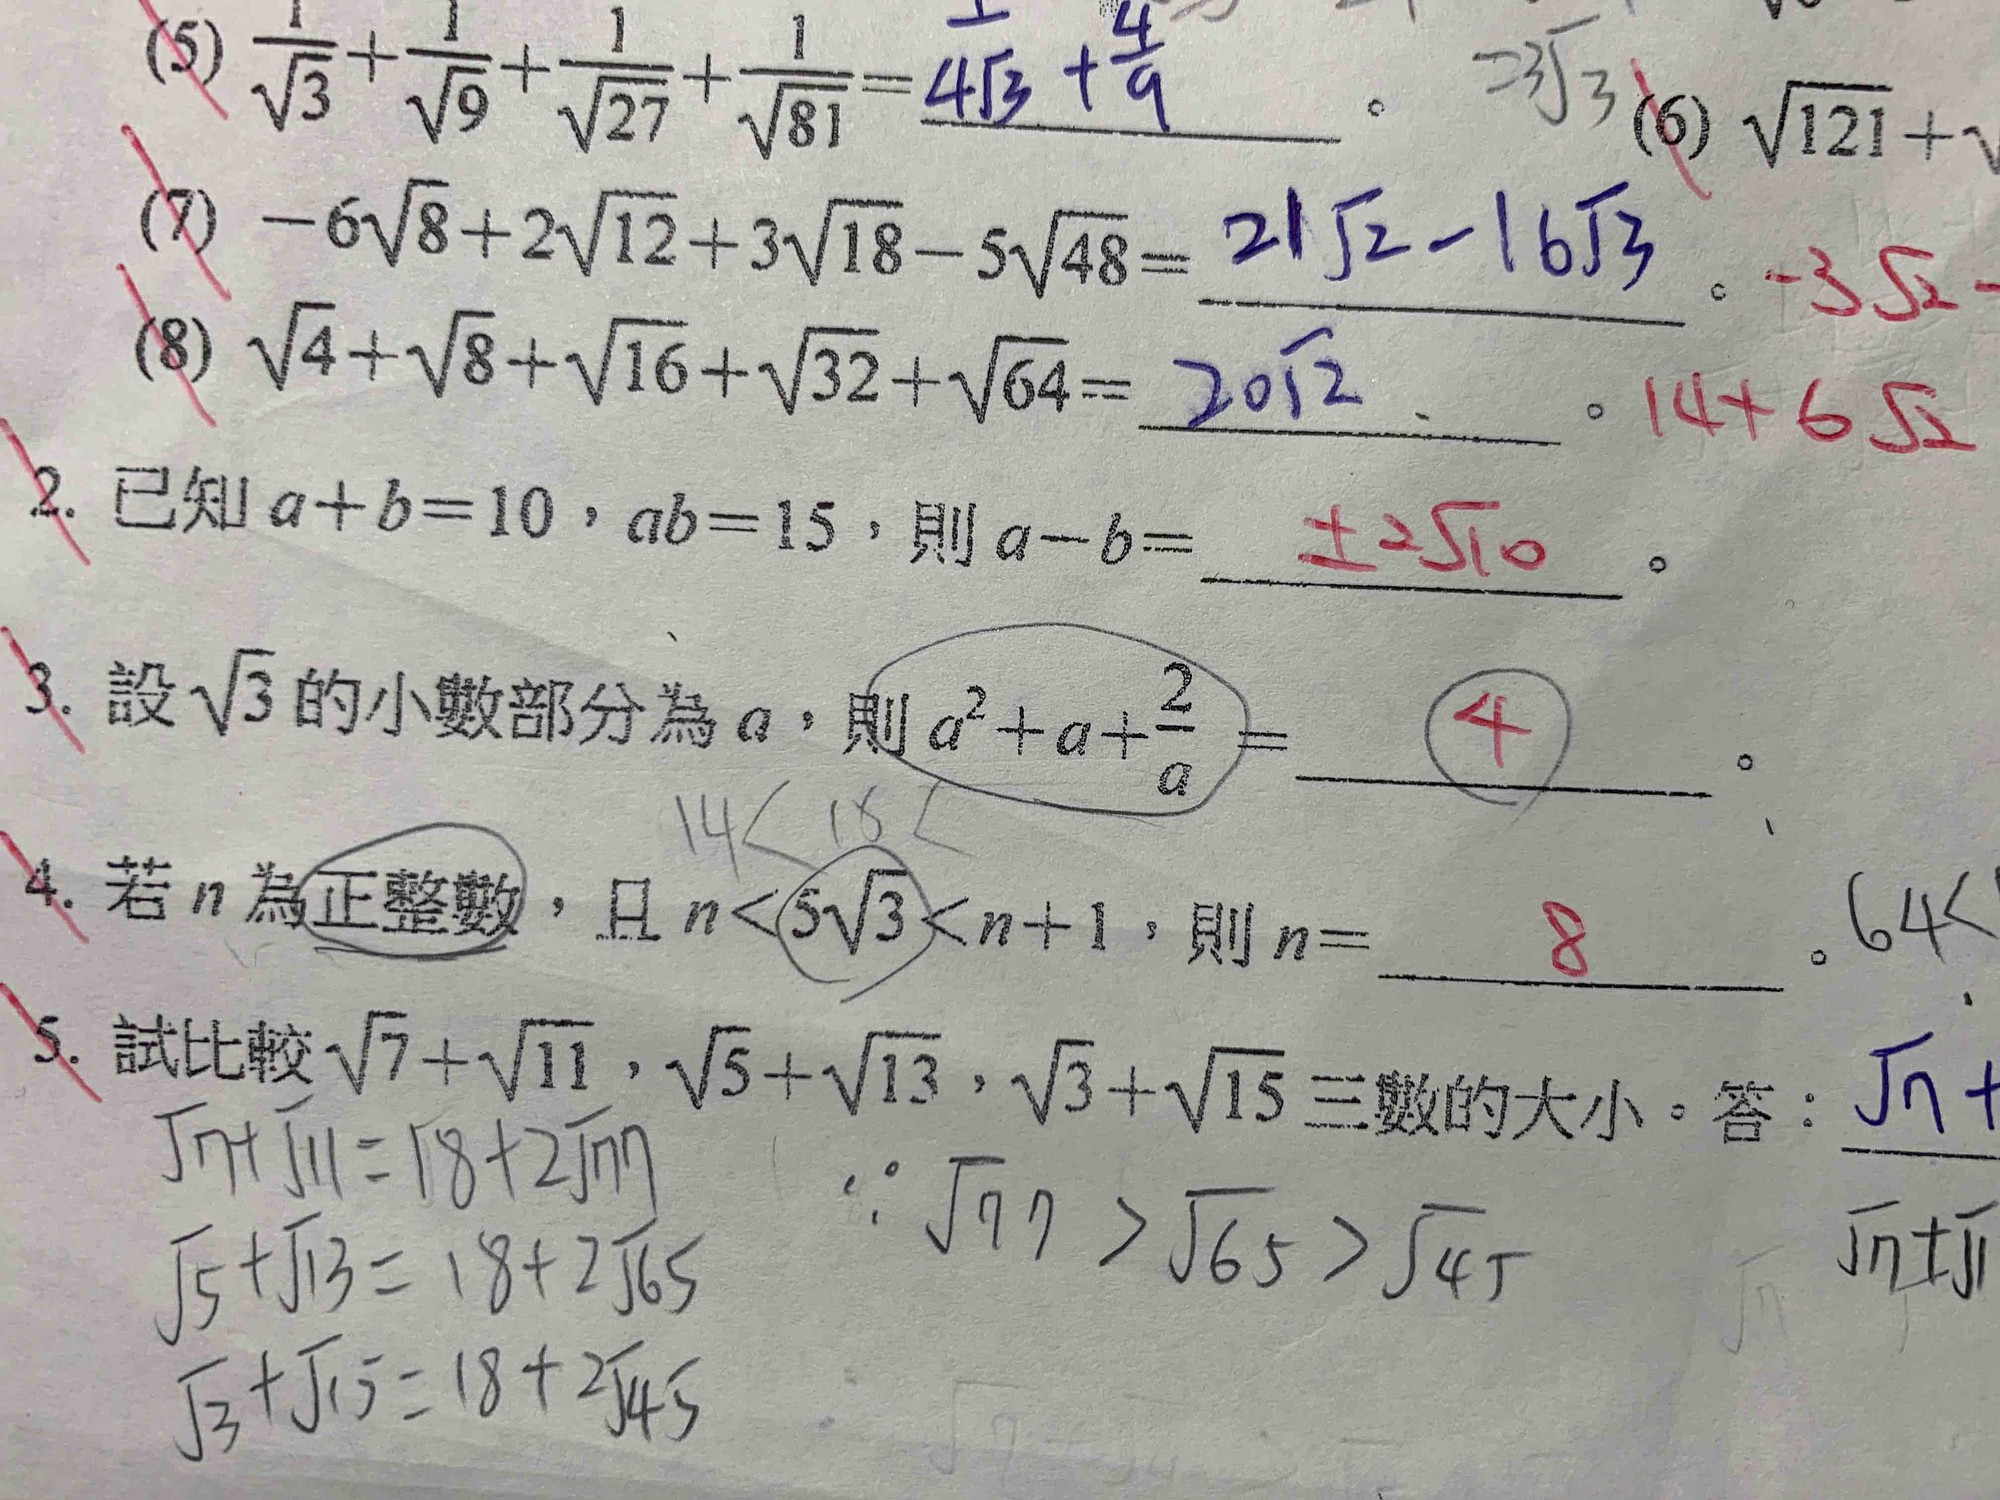 (5) 1/√3 + 1/√9 + 1/√27 + 1/√81 = 1/4√3 + 4/9 。 =3√3
(6) √121 +
(7) −6√8 + 2√12 + 3√18 − 5√48 = 21√2 − 16√3 。 −3√2 −
(8) √4 + √8 + √16 + √32 + √64 = 20√2 。 14+6√2
2. 已知 a+b=10，ab=15，則 a−b= ±2√10 。
3. 設 √3 的小數部分為 a，則 a²+a+2/a = 4 。
14<
4. 若 n 為正整數，且 n<5√3<n+1，則 n= 8 。 64<
5. 試比較 √7+√11，√5+√13，√3+√15 三數的大小。答： √7+
√7+√11=18+2√77
∵ √77 > √65 > √45
√7+√11
√5+√13=18+2√65
√3+√15=18+2√45